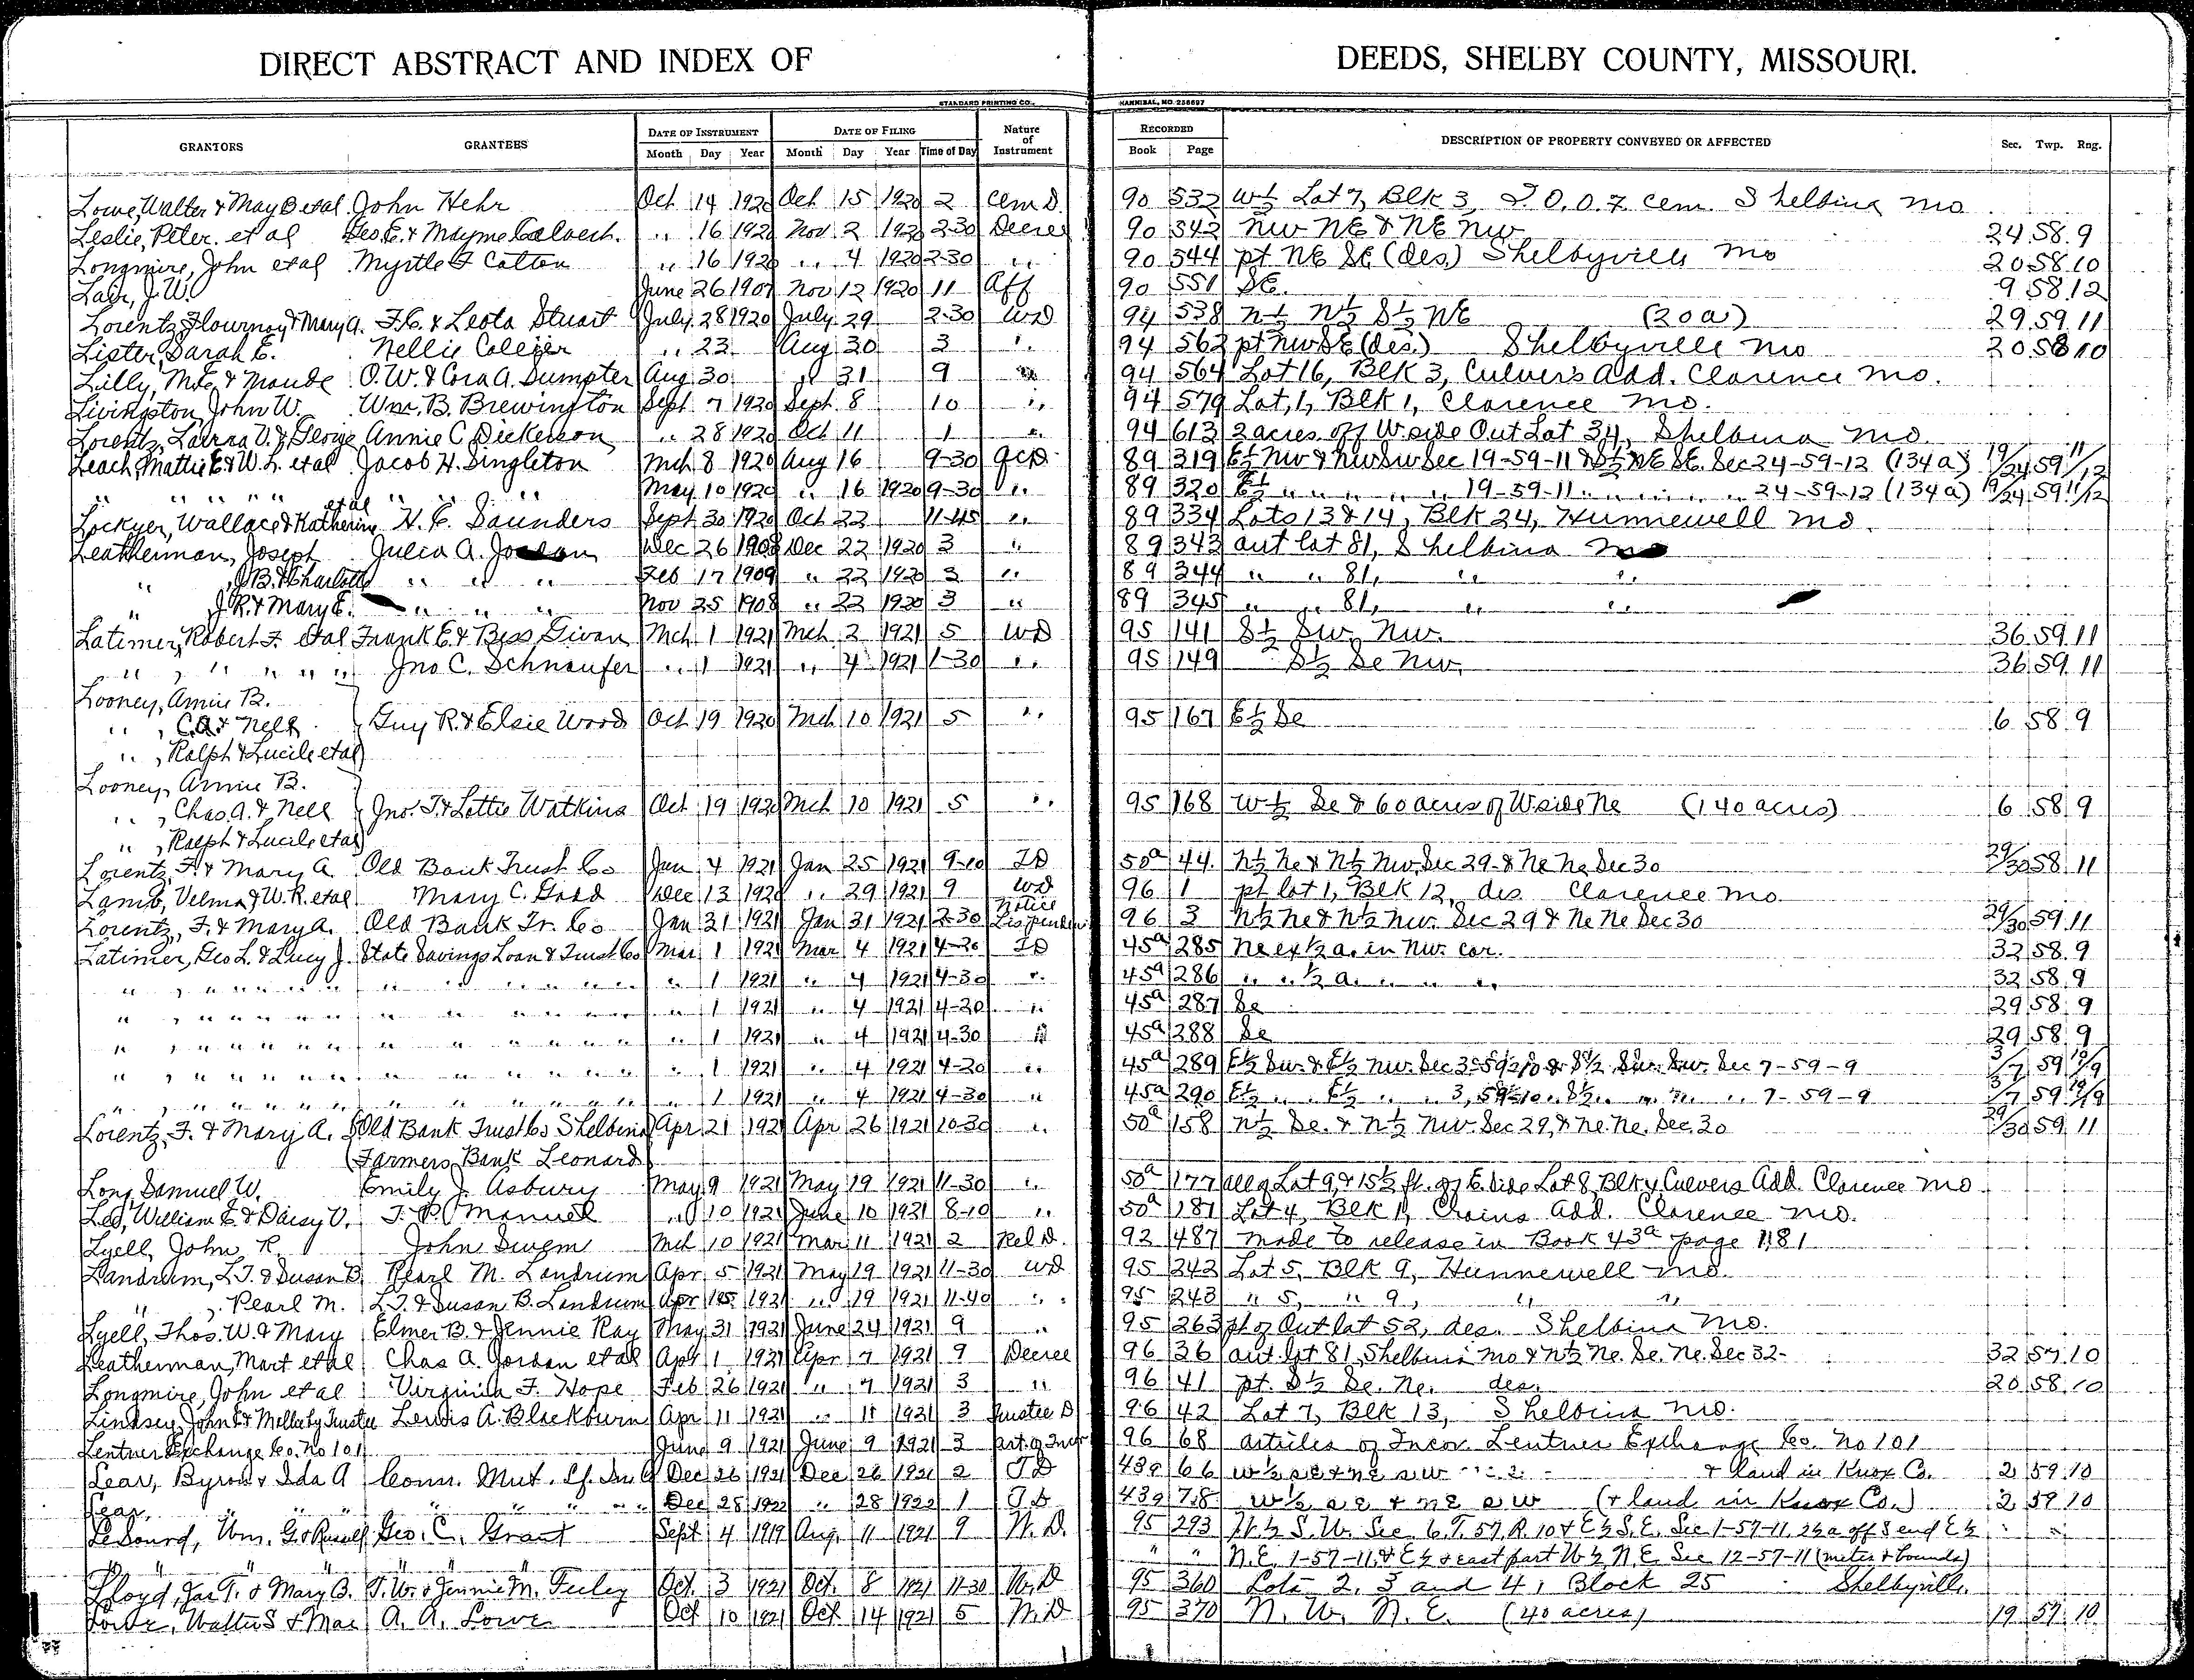 DIRECT ABSTRACT AND INDEX OF DEEDS, SHELBY COUNTY, MISSOURI.
STANDARD PRINTING CO., HANNIBAL, MO. 258697
GRANTORS GRANTEES DATE OF INSTRUMENT DATE OF FILING Nature of Instrument RECORDED DESCRIPTION OF PROPERTY CONVEYED OR AFFECTED Sec. Twp. Rng.
Month Day Year Month Day Year Time of Day Book Page
Lowe, Walter & May B etal John Hehr Oct 14 1920 Oct 15 1920 2 Cem D. 90 532 W½ Lot 7, Blk 3, I.O.O.F. Cem. Shelbina Mo
Leslie, Peter et al Geo. E. & Mayme Calvert. " 16 1920 Nov 2 1920 2-30 Decree 90 542 NW NE & NE NW 24 58 9
Longmire, John et al Myrtle F Cotton " 16 1920 " 4 1920 2-30 " 90 544 pt NE SE (des) Shelbyville Mo 20 58 10
Lair, J.W. June 26 1907 Nov 12 1920 11 Aff 90 551 SE. 9 58 12
Lorentz, Flournoy & Mary A. F.C. & Leota Stuart July 28 1920 July 29 2-30 WD 94 538 N½ N½ S½ NE (20a) 29 59 11
Lister, Sarah E. Nellie Collier " 23 Aug 20 3 " 94 562 pt NW SE (des.) Shelbyville Mo 20 58 10
Lilly, M.E. & Maude O.W. & Cora A. Dumpter Aug 30 " 31 9 " 94 564 Lot 16, Blk 3, Culvers Add. Clarence Mo.
Livingston, John W. Wm. B. Brewington Sept 7 1920 Sept. 8 10 " 94 579 Lot, 1, Blk 1, Clarence Mo.
Lorentz, Laura V. & George Annie C Dickerson " 28 1920 Oct 11 1 " 94 613 2 acres off W side Out Lot 34, Shelbina Mo.
Leach, Mattie E & W.L. etal Jacob H. Singleton Mch 8 1920 Aug 16 9-30 QCD 89 319 E½ NW & NW SW Sec 19-59-11 & S½ NE SE. Sec 24-59-12 (134a) 19/24 59 11/12
" " " " " " " " May 10 1920 " 16 1920 9-30 " 89 320 E½ " " " " " 19-59-11 " " " " " 24-59-12 (134a) 19/24 59 11/12
Lockyer, Wallace & Katherine etal H. E. Saunders Sept 30 1920 Oct 22 11-45 " 89 334 Lots 13 & 14, Blk 24, Hunnewell Mo.
Leatherman, Joseph Julia A. Dec 26 1908 Dec 22 1920 3 " 89 343 out lot 81, Shelbina Mo
" , J B. & Charlotte " " " Feb 17 1909 " 22 1920 3 " 89 344 " " 81, " "
" J.R. & Mary E. " " " Nov 25 1908 " 22 1920 3 " 89 345 " " 81, " "
Latimer, Robert F. etal Frank E. & Bess Givan Mch 1 1921 Mch 2 1921 5 WD 95 141 S½ SW. NW. 36 59 11
" , " " " " Jno C. Schnaufer " 1 1921 " 4 1921 1-30 " 95 149 S½ Se NW. 36 59 11
Looney, Annie B.
" , C.A. & Nell Guy R. & Elsie Wood Oct 19 1920 Mch 10 1921 5 " 95 167 E½ Se 6 58 9
" , Ralph & Lucile etal
Looney, Annie B.
" , Chas. A. & Nell Jno. T. & Lottie Watkins Oct 19 1920 Mch 10 1921 5 " 95 168 W½ Se & 60 acres of W side Ne (140 acres) 6 58 9
" , Ralph & Lucile etal
Lorentz, F. & Mary A. Old Bank Trust Co Jan 4 1921 Jan 25 1921 9-10 TD 50a 44. N½ Ne & N½ NW. Sec 29. & Ne Ne Sec 30 29/30 58 11
Lamb, Velma & W.R. etal Mary C. Dec 13 1920 " 29 1921 9 WD 96 1 pt lot 1, Blk 12, des Clarence Mo.
Lorentz, F. & Mary A. Old Bank Tr. Co Jan 31 1921 Jan 31 1921 2-30 Notice Lis penden 96 3 N½ Ne & N½ NW. Sec 29 & Ne Ne Sec 30 29/30 59 11
Latimer, Geo L. & Lucy J. State Savings Loan & Trust Co Mar 1 1921 Mar 4 1921 4-20 TD 45a 285 Ne ex ½ a. in NW. cor. 32 58 9
" , " " " " " " " " " " 1 1921 " 4 1921 4-30 " 45a 286 " " ½ a. " " " 32 58 9
" , " " " " " " " " " " 1 1921 " 4 1921 4-20 " 45a 287 Se 29 58 9
" , " " " " " " " " " " 1 1921 " 4 1921 4-30 " 45a 288 Se 29 58 9
" , " " " " " " " " " " 1 1921 " 4 1921 4-20 " 45a 289 E½ SW. & E½ NW. Sec 3-59-10 & S½ SW. SW. Sec 7-59-9 3/7 59 10/9
" , " " " " " " " " " " 1 1921 " 4 1921 4-30 " 45a 290 E½ " " E½ " " 3, 59-10 " S½ " " " 7-59-9 3/7 59 10/9
Lorentz, F. & Mary A. Old Bank Trust Co Shelbina Apr 21 1921 Apr 26 1921 10-30 " 50a 158 N½ Se. & N½ NW. Sec 29, & Ne. Ne. Sec. 30 29/30 59 11
Farmers Bank Leonard
Long, Samuel W. Emily J. Asbury May 9 1921 May 19 1921 11-30 " 50a 177 all of Lot 9, & 15½ ft. of E. side Lot 8, Blk 4 Culvers Add. Clarence Mo
Lee, William E. & Daisy V. Manuel " 10 1921 June 10 1921 8-10 " 50a 187 Lot 4, Blk 1, Add. Clarence Mo.
Lyell, John R. John Swem Mch 10 1921 Mar 11 1921 2 Rel D. 92 487 made to release in Book 43a page 181
Landrum, L.T. & Susan B. Pearl M. Landrum Apr 5 1921 May 19 1921 11-30 WD 95 242 Lot 5, Blk 9, Hunnewell Mo.
" , Pearl M. L.T. & Susan B. Landrum Apr 1921 " 19 1921 11-40 " 95 243 " 5, " 9, " "
Lyell, Thos. W. & Mary Elmer B. & Jennie Ray May 31 1921 June 24 1921 9 " 95 263 pt of Out lot 52, des. Shelbina Mo.
Leatherman, Mart etal Chas A. Jordan etal Apr 1 1921 Apr 7 1921 9 Decree 96 36 out lot 81, Shelbina Mo & N½ Ne. Se. Ne. Sec 32- 32 57 10
Longmire, John et al Virginia F. Hope Feb 26 1921 " 7 1921 3 " 96 41 pt. S½ Se. Ne. des. 20 58 10
Lindsey, John E & Mellie by Trustee Lewis A. Blackburn Apr 11 1921 " 11 1921 3 Trustee D 96 42 Lot 7, Blk 13, Shelbina Mo.
Lentner Exchange Co. No 101 June 9 1921 June 9 1921 3 Art. of Incr 96 68 articles of Incor. Lentner Exchange Co. No 101
Lear, Byron & Ida A Conn. Mut. Lf. Ins Co Dec 26 1921 Dec 26 1921 2 TD 439 66 W½ se & ne sw & land in Knox Co. 2 59 10
Lear, " " " " " " " Dec 28 1922 " 28 1922 1 TD 439 78 W½ se & ne sw (& land in Knox Co.) 2 59 10
LeSourd, Wm. G. & Russell Geo. C. Grant Sept 4 1919 Aug. 11 1921 9 W.D. 95 293 W½ S.W. Sec. 6, T. 57, R. 10 & E½ S.E. Sec 1-57-11, 26a off S end E½
" " " " " " " N.E. 1-57-11, & E½ & east part W½ N.E. Sec 12-57-11 (metes & bounds)
Lloyd, Jas T. & Mary B. T.W. & Jennie M. Feely Oct. 3 1921 Oct. 8 1921 11-30 W.D 95 360 Lots 2, 3 and 4, Block 25 Shelbyville.
Lowe, Walter S & Mae A. A. Lowe Oct 10 1921 Oct 14 1921 5 W.D 95 370 N. W. N. E. (40 acres) 19 57 10